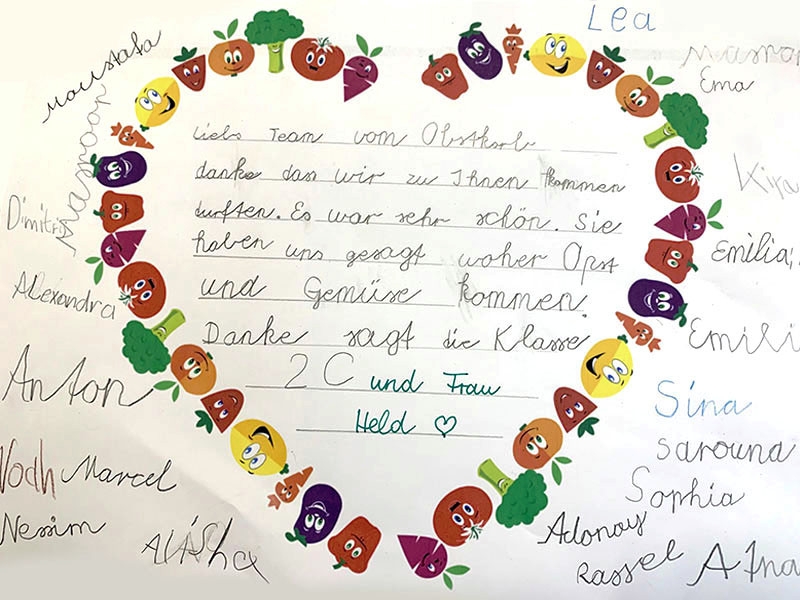 Lea
Moustafa
Ema
Liebs Team vom Obstkorb
danke das wir zu Ihnen kommen
durften. Es war sehr schön. Sie
haben uns gesagt woher Opst
und Gemüse kommen.
Danke sagt die Klasse
2 C und Frau
Held ♡
Kira
Dimitrij
Emilia
Alexandra
Emili
Anton
Sina
sarouna
Marcel
Sophia
Nessim
Alisha
Adonay
Rassel